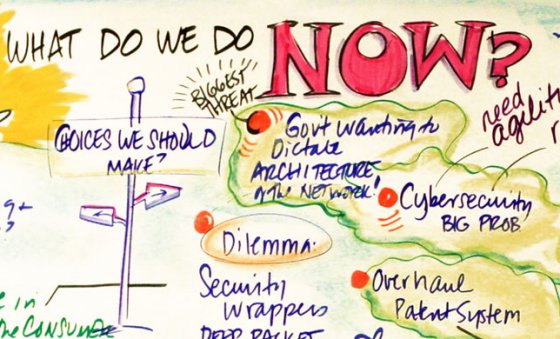 WHAT DO WE DO NOW?
BIGGEST
THREAT
CHOICES WE SHOULD
MAKE?
Govt wanting to
Dictate
ARCHITECTURE
of the NETWORK!
need
agility
Cybersecurity
BIG PROB
Dilemma:
Security
Wrappers
DEEP PACKET
Overhaul
Patent System
in
the CONSUMER